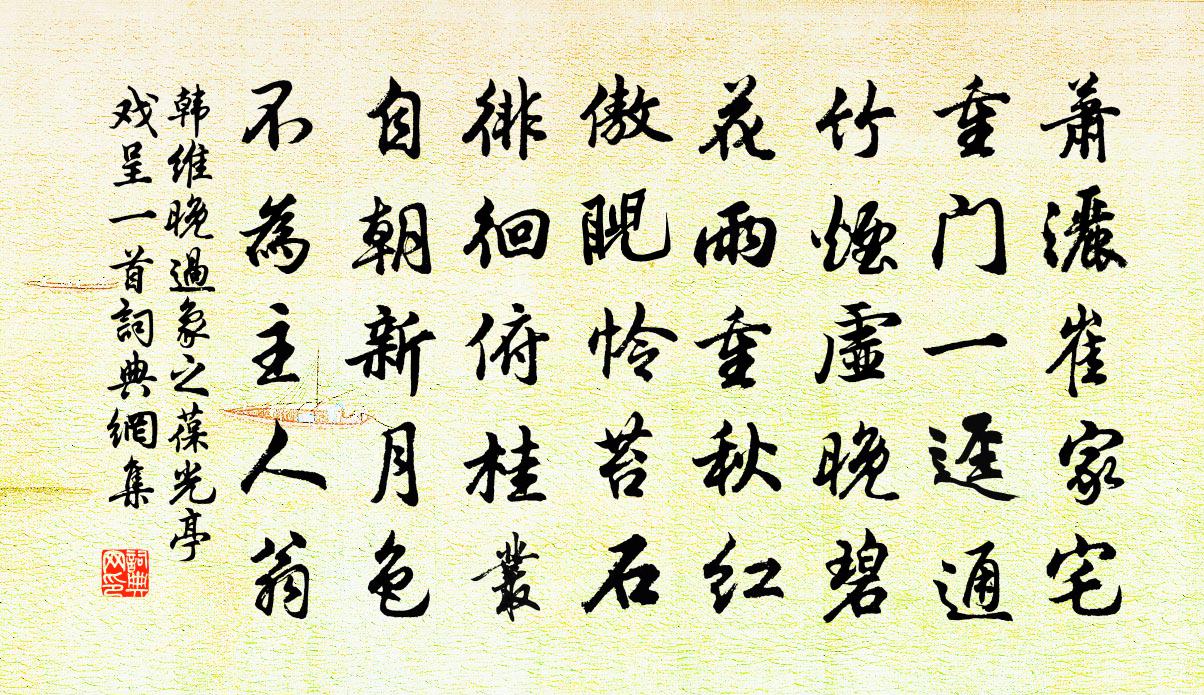 萧灑崔家宅
重门一逕通
竹煙虛晚碧
花雨重秋红
傲睨怜苔石
徘徊俯桂叢
自朝新月色
不為主人翁
韩维晚過象之葆光亭
戏呈一首詞典網集
詞典
网印